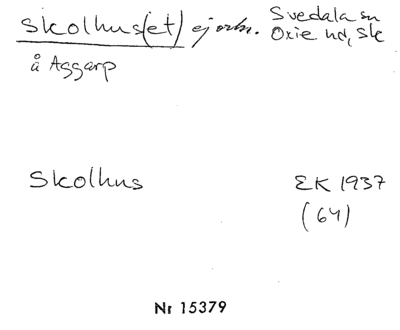 Skolhus(et) ej ortn. Svedala sn
Oxie hd, Sk
å Aggarp
Skolhus EK 1937
(64)
Nr 15379